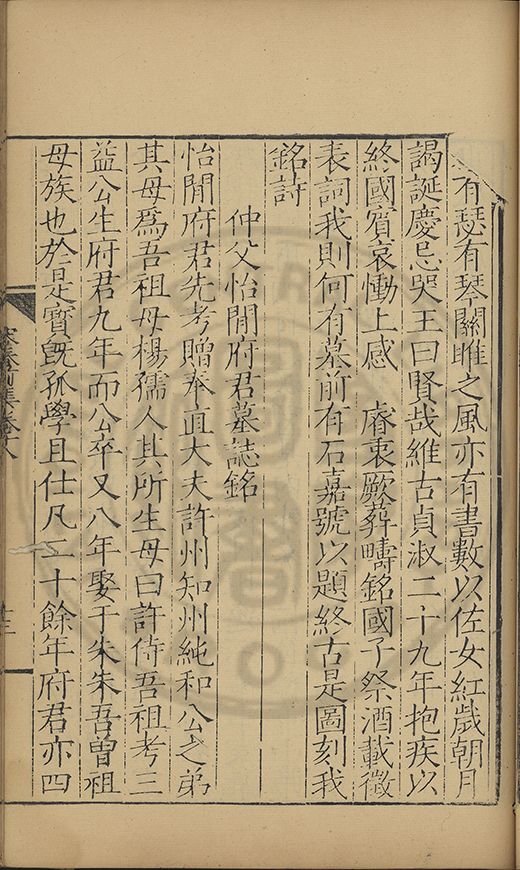 有瑟有琴關雎之風亦有書數以佐女紅歲朝月
謁誕慶忌哭王曰賢哉維古貞淑二十九年抱疾以
終國賓哀慟上感 睿衷厥葬疇銘國子祭酒載徵
表詞我則何有墓前有石嘉號以題終古是圖刻我
銘詩
仲父怡閒府君墓誌銘
怡閒府君先考贈奉直大夫許州知州純和公之弟
其母爲吾祖母楊孺人其所生母曰許侍吾祖考三
益公生府君九年而公卒又八年娶于朱朱吾曾祖
母族也於是寳旣孤學且仕凡二十餘年府君亦四